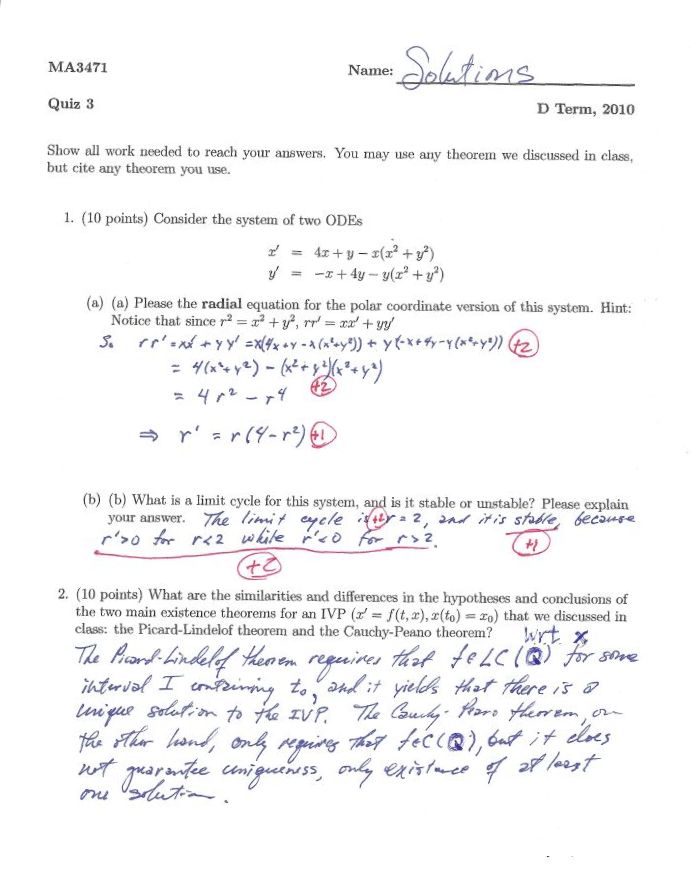 MA3471
Name: Solutions
Quiz 3
D Term, 2010
Show all work needed to reach your answers. You may use any theorem we discussed in class,
but cite any theorem you use.
1. (10 points) Consider the system of two ODEs
x′ = 4x + y − x(x² + y²)
y′ = −x + 4y − y(x² + y²)
(a) (a) Please the radial equation for the polar coordinate version of this system. Hint:
Notice that since r² = x² + y², rr′ = xx′ + yy′
So rr′ = xx′ + yy′ = x(4x+y−x(x²+y²)) + y(−x+4y−y(x²+y²)) +2
= 4(x²+y²) − (x²+y²)(x²+y²)
= 4r² − r⁴ +2
⇒ r′ = r(4−r²) +1
(b) (b) What is a limit cycle for this system, and is it stable or unstable? Please explain
your answer. The limit cycle is +2 r = 2, and it is stable, because
r′>0 for r<2 while r′<0 for r>2. +1
+2
2. (10 points) What are the similarities and differences in the hypotheses and conclusions of
the two main existence theorems for an IVP (x′ = f(t, x), x(t₀) = x₀) that we discussed in
class: the Picard-Lindelof theorem and the Cauchy-Peano theorem?
wrt x
The Picard-Lindelof theorem requires that f∈LC(Q) for some
interval I containing t₀, and it yields that there is a
unique solution to the IVP. The Cauchy-Peano theorem, on
the other hand, only requires that f∈C(Q), but it does
not guarantee uniqueness, only existence of at least
one solution.